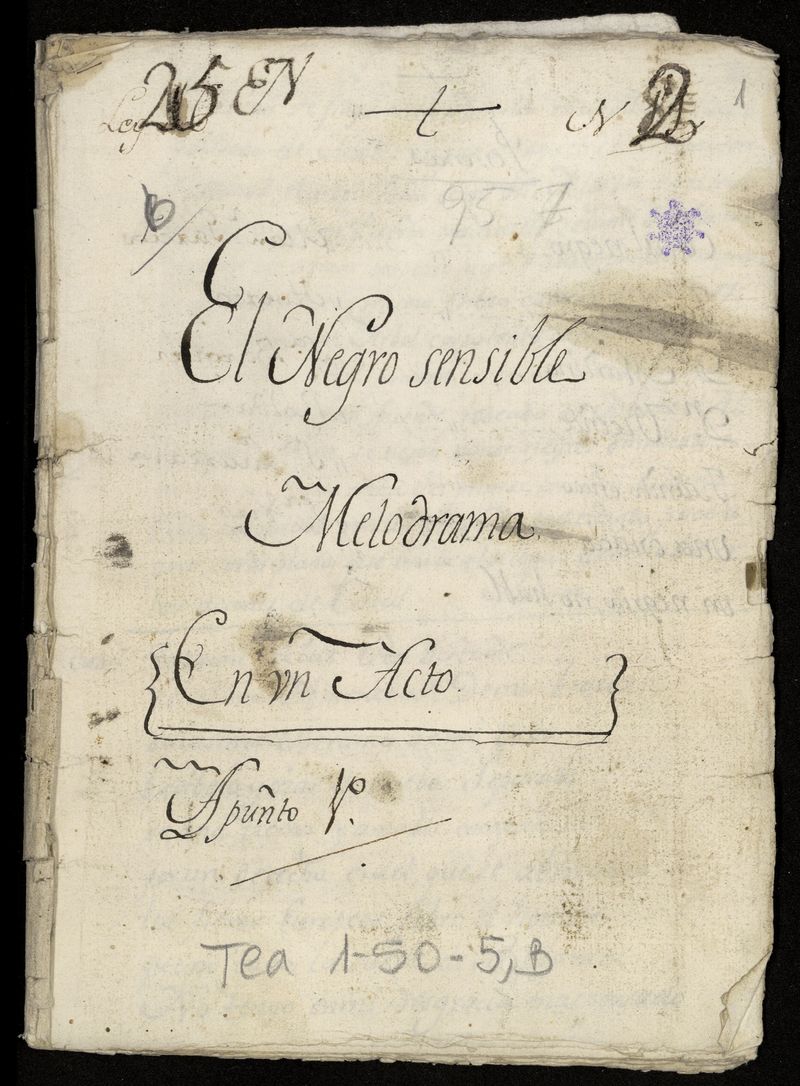 25 EN
N 2
1
95 7
El Negro sensible
Melodrama.
En vn Acto.
Apunto 1º.
Tea 1-50-5, B